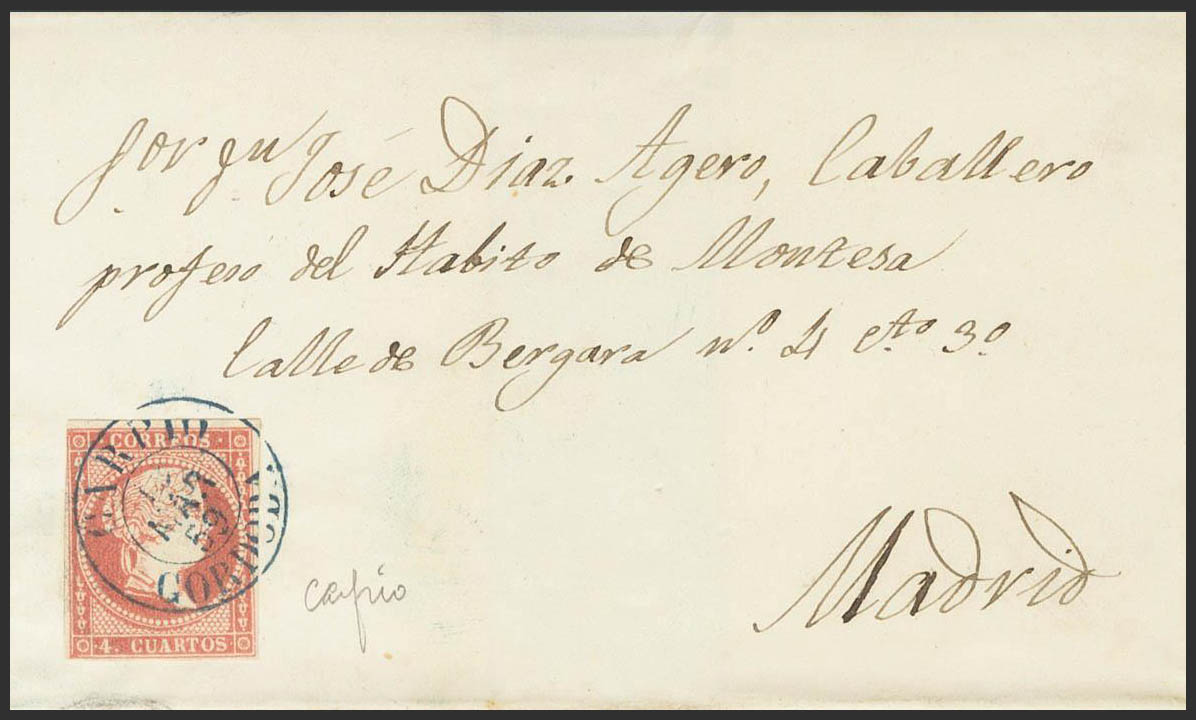 Sor Dn José Diaz Agero, Caballero
profeso del Habito de Montesa
Calle de Bergara nº. 4 cto 3º.
CARPIO
CORDOBA
59
CORREOS
4. CUARTOS
carpio
Madrid